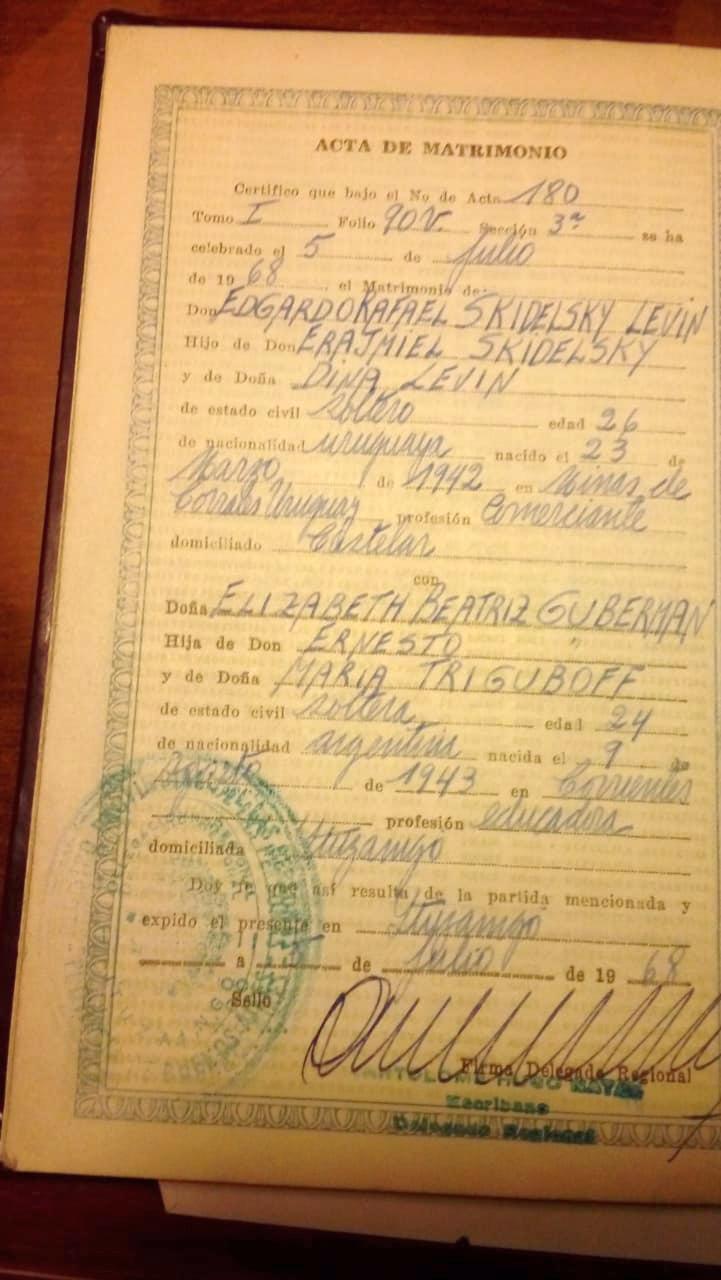 ACTA DE MATRIMONIO
Certifico que bajo el No de Acta 180
Tomo I Folio 90V. Sección 3ª se ha
celebrado el 5 de Julio
de 19 68 el Matrimonio de:
Don EDGARDO RAFAEL SKIDELSKY LEVIN
Hijo de Don ERAJMIEL SKIDELSKY
y de Doña DINA LEVIN
de estado civil soltero edad 26
de nacionalidad uruguaya nacido el 23 de
Marzo de 1942 en Minas de
Corrales Uruguay profesión Comerciante
domiciliado Castelar
con
Doña ELIZABETH BEATRIZ GUBERMAN
Hija de Don ERNESTO "
y de Doña MARIA TRIGUBOFF
de estado civil soltera edad 24
de nacionalidad argentina nacida el 9 de
agosto de 1943 en Corrientes
profesión educadora
domiciliada Ituzaingo
Doy fe que así resulta de la partida mencionada y
expido el presente en Ituzaingo
a 5 de Julio de 19 68
Sello
Firma Delegado Regional
HUGO
Escribano
Delegado Regional